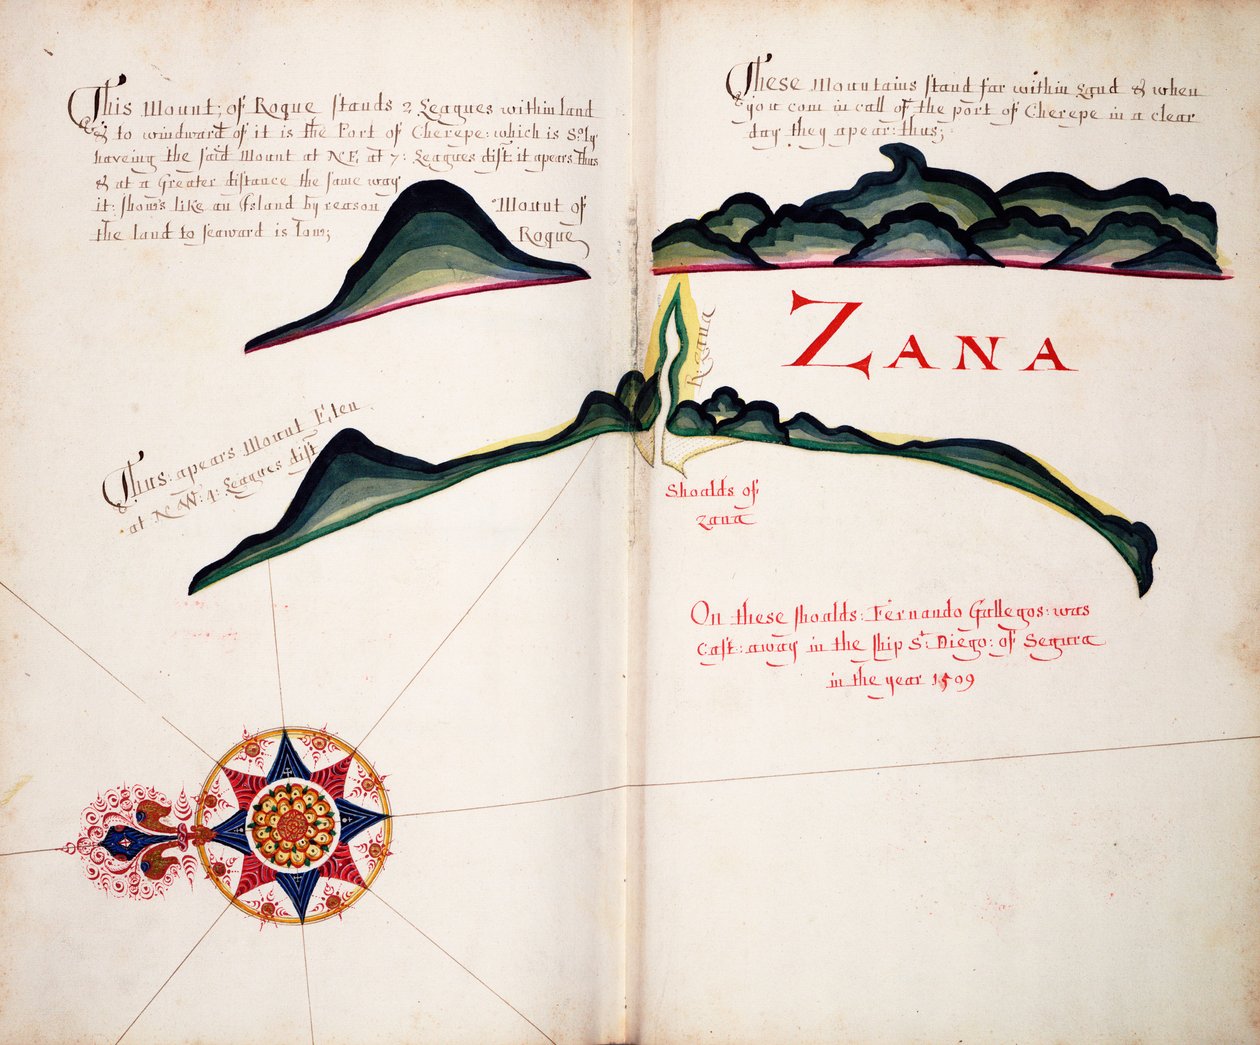 This Mount; of Roque stands 2 Leagues within land
& to windward of it is the Port of Cherepe: which is Soly
haveing the said Mount at NE, at 7: Leagues dist: it apears thus
& at a Greater distance the same way
it: shows like an Island by reason
the land to seaward is low;
Mount of
Roque
These Mountains stand far within Land & when
you com in call of the port of Cherepe in a clear
day they apear: thus;
ZANA
R: Zana
Thus: apears Mount Eten
at NW: 4: Leagues dist
Shoalds of
Zana
On these shoalds: Fernando Gallegos: was
Cast: away in the ship St: Diego: of Segura
in the year 1599